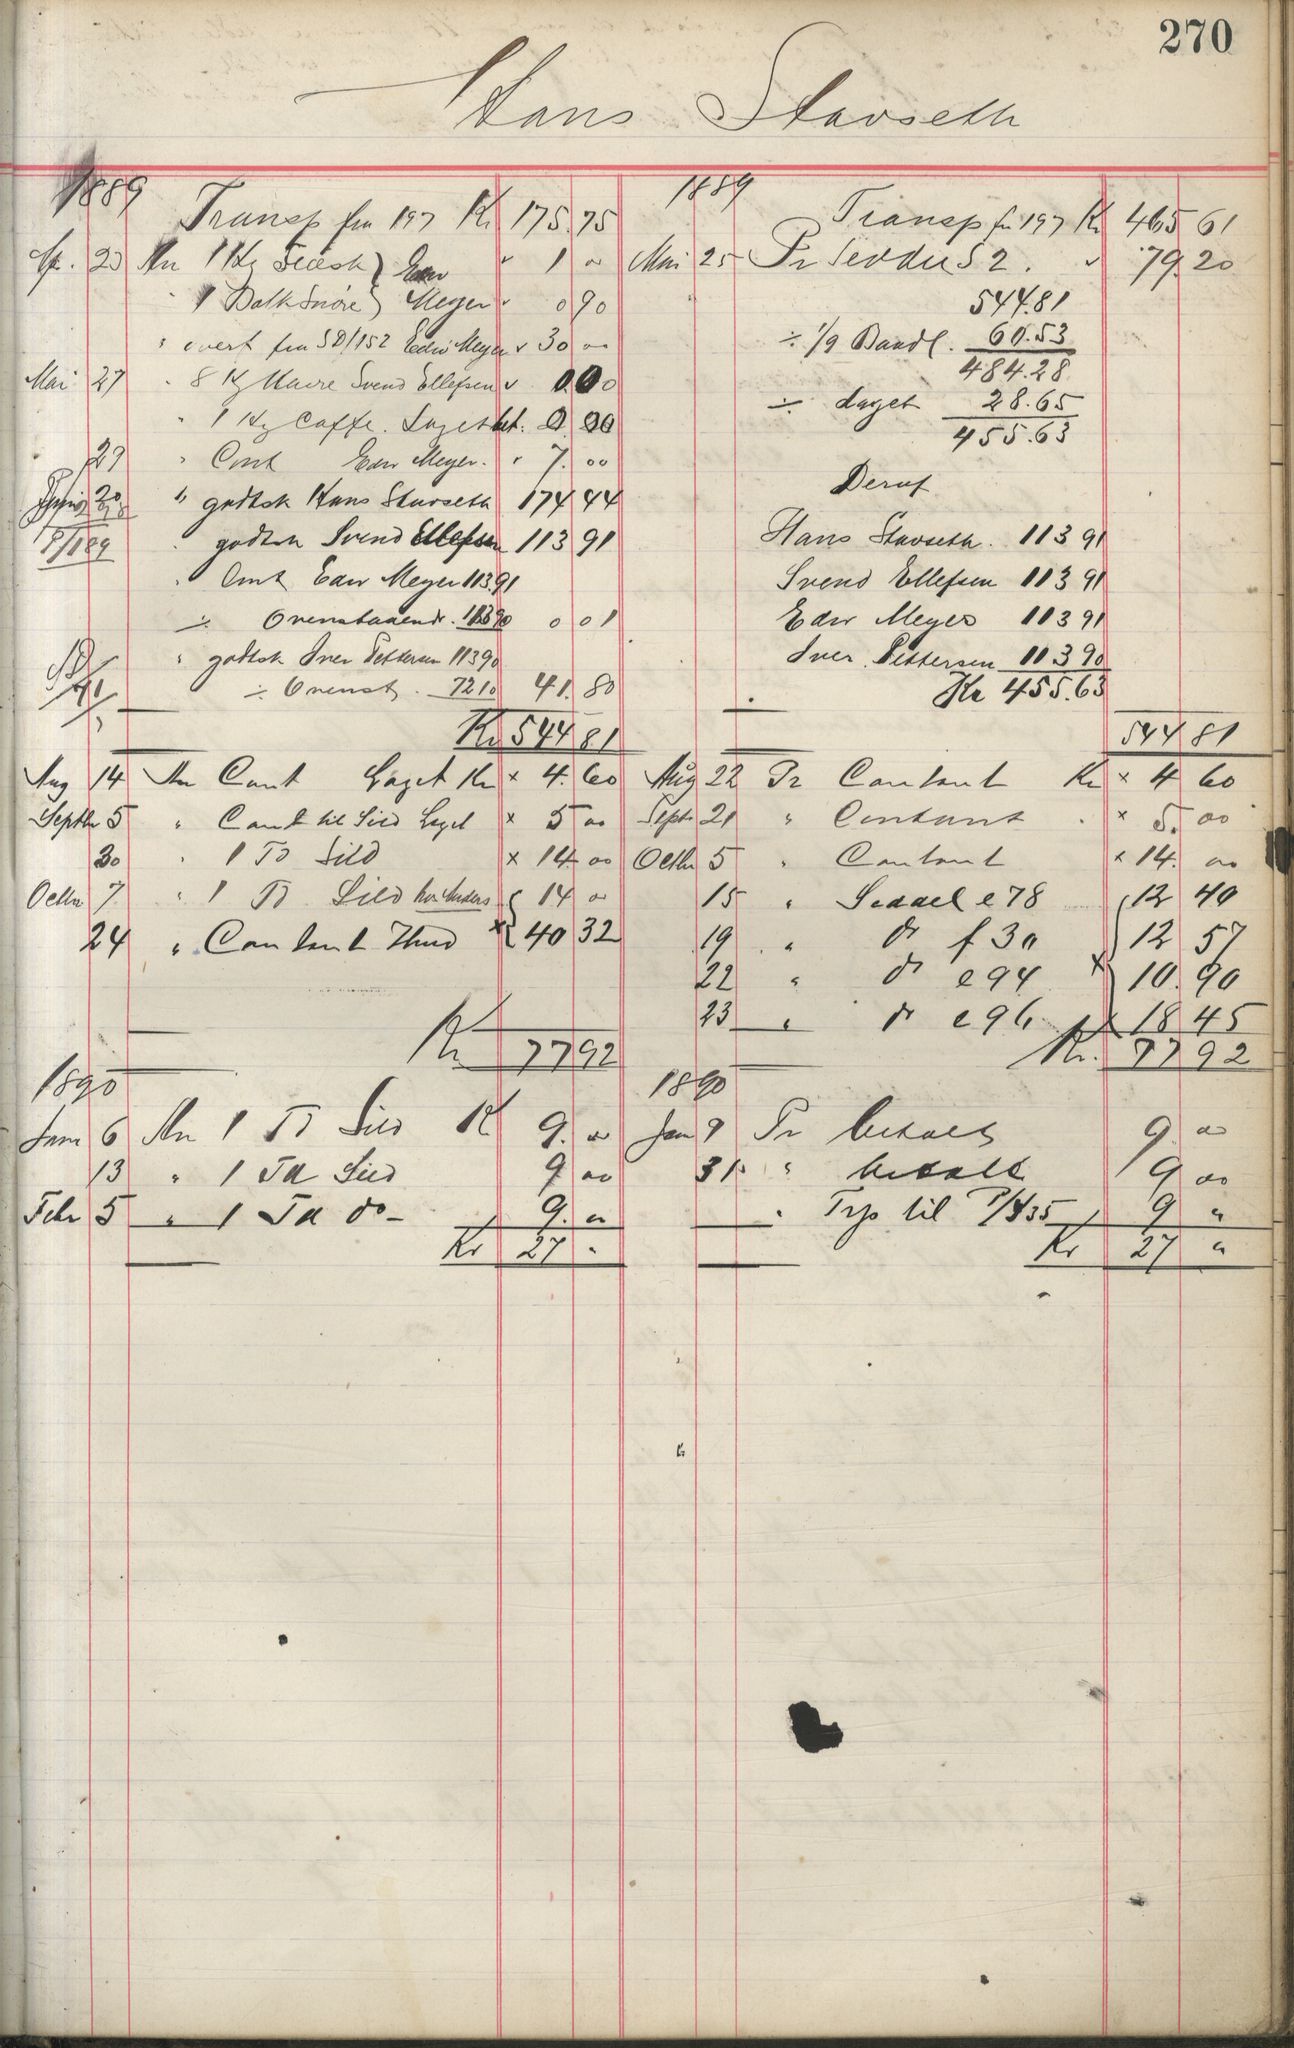 270
Hans Stavseth
1889
Transp fra 197 Kr 175.75
Ap. 23 An 1 Kg Fleesk } Edw " 1 00
" 1 Dolk Snøre } Meyer " 0 90
" overf fra SD/152 Edw Meyer " 30 00
Mai 27 " 8 Kg Svend Ellefsen "
" 1 Kg Caffe. Laget
29 " Cont Edw Meyer. " 7. 00
20 " godtsk Hans Stavseth 174 44
P/189 " godtsk Svend Ellefsen 113 91
" Cont Edw Meyer 113.91
÷ Ovenstaaende. 113 90 0 01
" godtsk Iver Pettersen 113 90
÷ Ovenst. 72 10 41. 80
Kr 544 81
Aug 14 An Cont Laget Kr × 4. 60
Septbr 5 " Cont til Sild Laget × 5 00
30 " 1 Td Sild × 14 00
Octbr 7 " 1 Td Sild { 14 00
24 " Contant × { 40 32
Kr 77 92
1890
Janr 6 An 1 Td Sild K 9. 00
13 " 1 Td Sild 9 00
Febr 5 " 1 Td do - 9. 00
Kr 27 "
1889
Transp fr 197 Kr 465 61
Mai 25 Pr Seddel S 2. " 79. 20
544.81
÷ 1/9 Baadl. 60.53
484.28
÷ Laget 28.65
455.63
Deraf
Hans Stavseth. 113 91
Svend Ellefsen 113 91
Edw Meyer 113 91
Iver Pettersen 113 90
Kr 455.63
544 81
Aug 22 Pr Contant Kr × 4 60
Sept 21 " Contant " × 5. 00
Octbr 5 " Contant × 14. 00
15 " Seddel e 78 { 12 40
19 " do f 30 { 12 57
22 " do e 94 × { 10. 90
23 " do e 96 18 45
Kr. 77 92
1890
Jan 9 Pr betalt 9 00
31 " betalt 9 00
" Trp til P/435 9 "
Kr 27 "